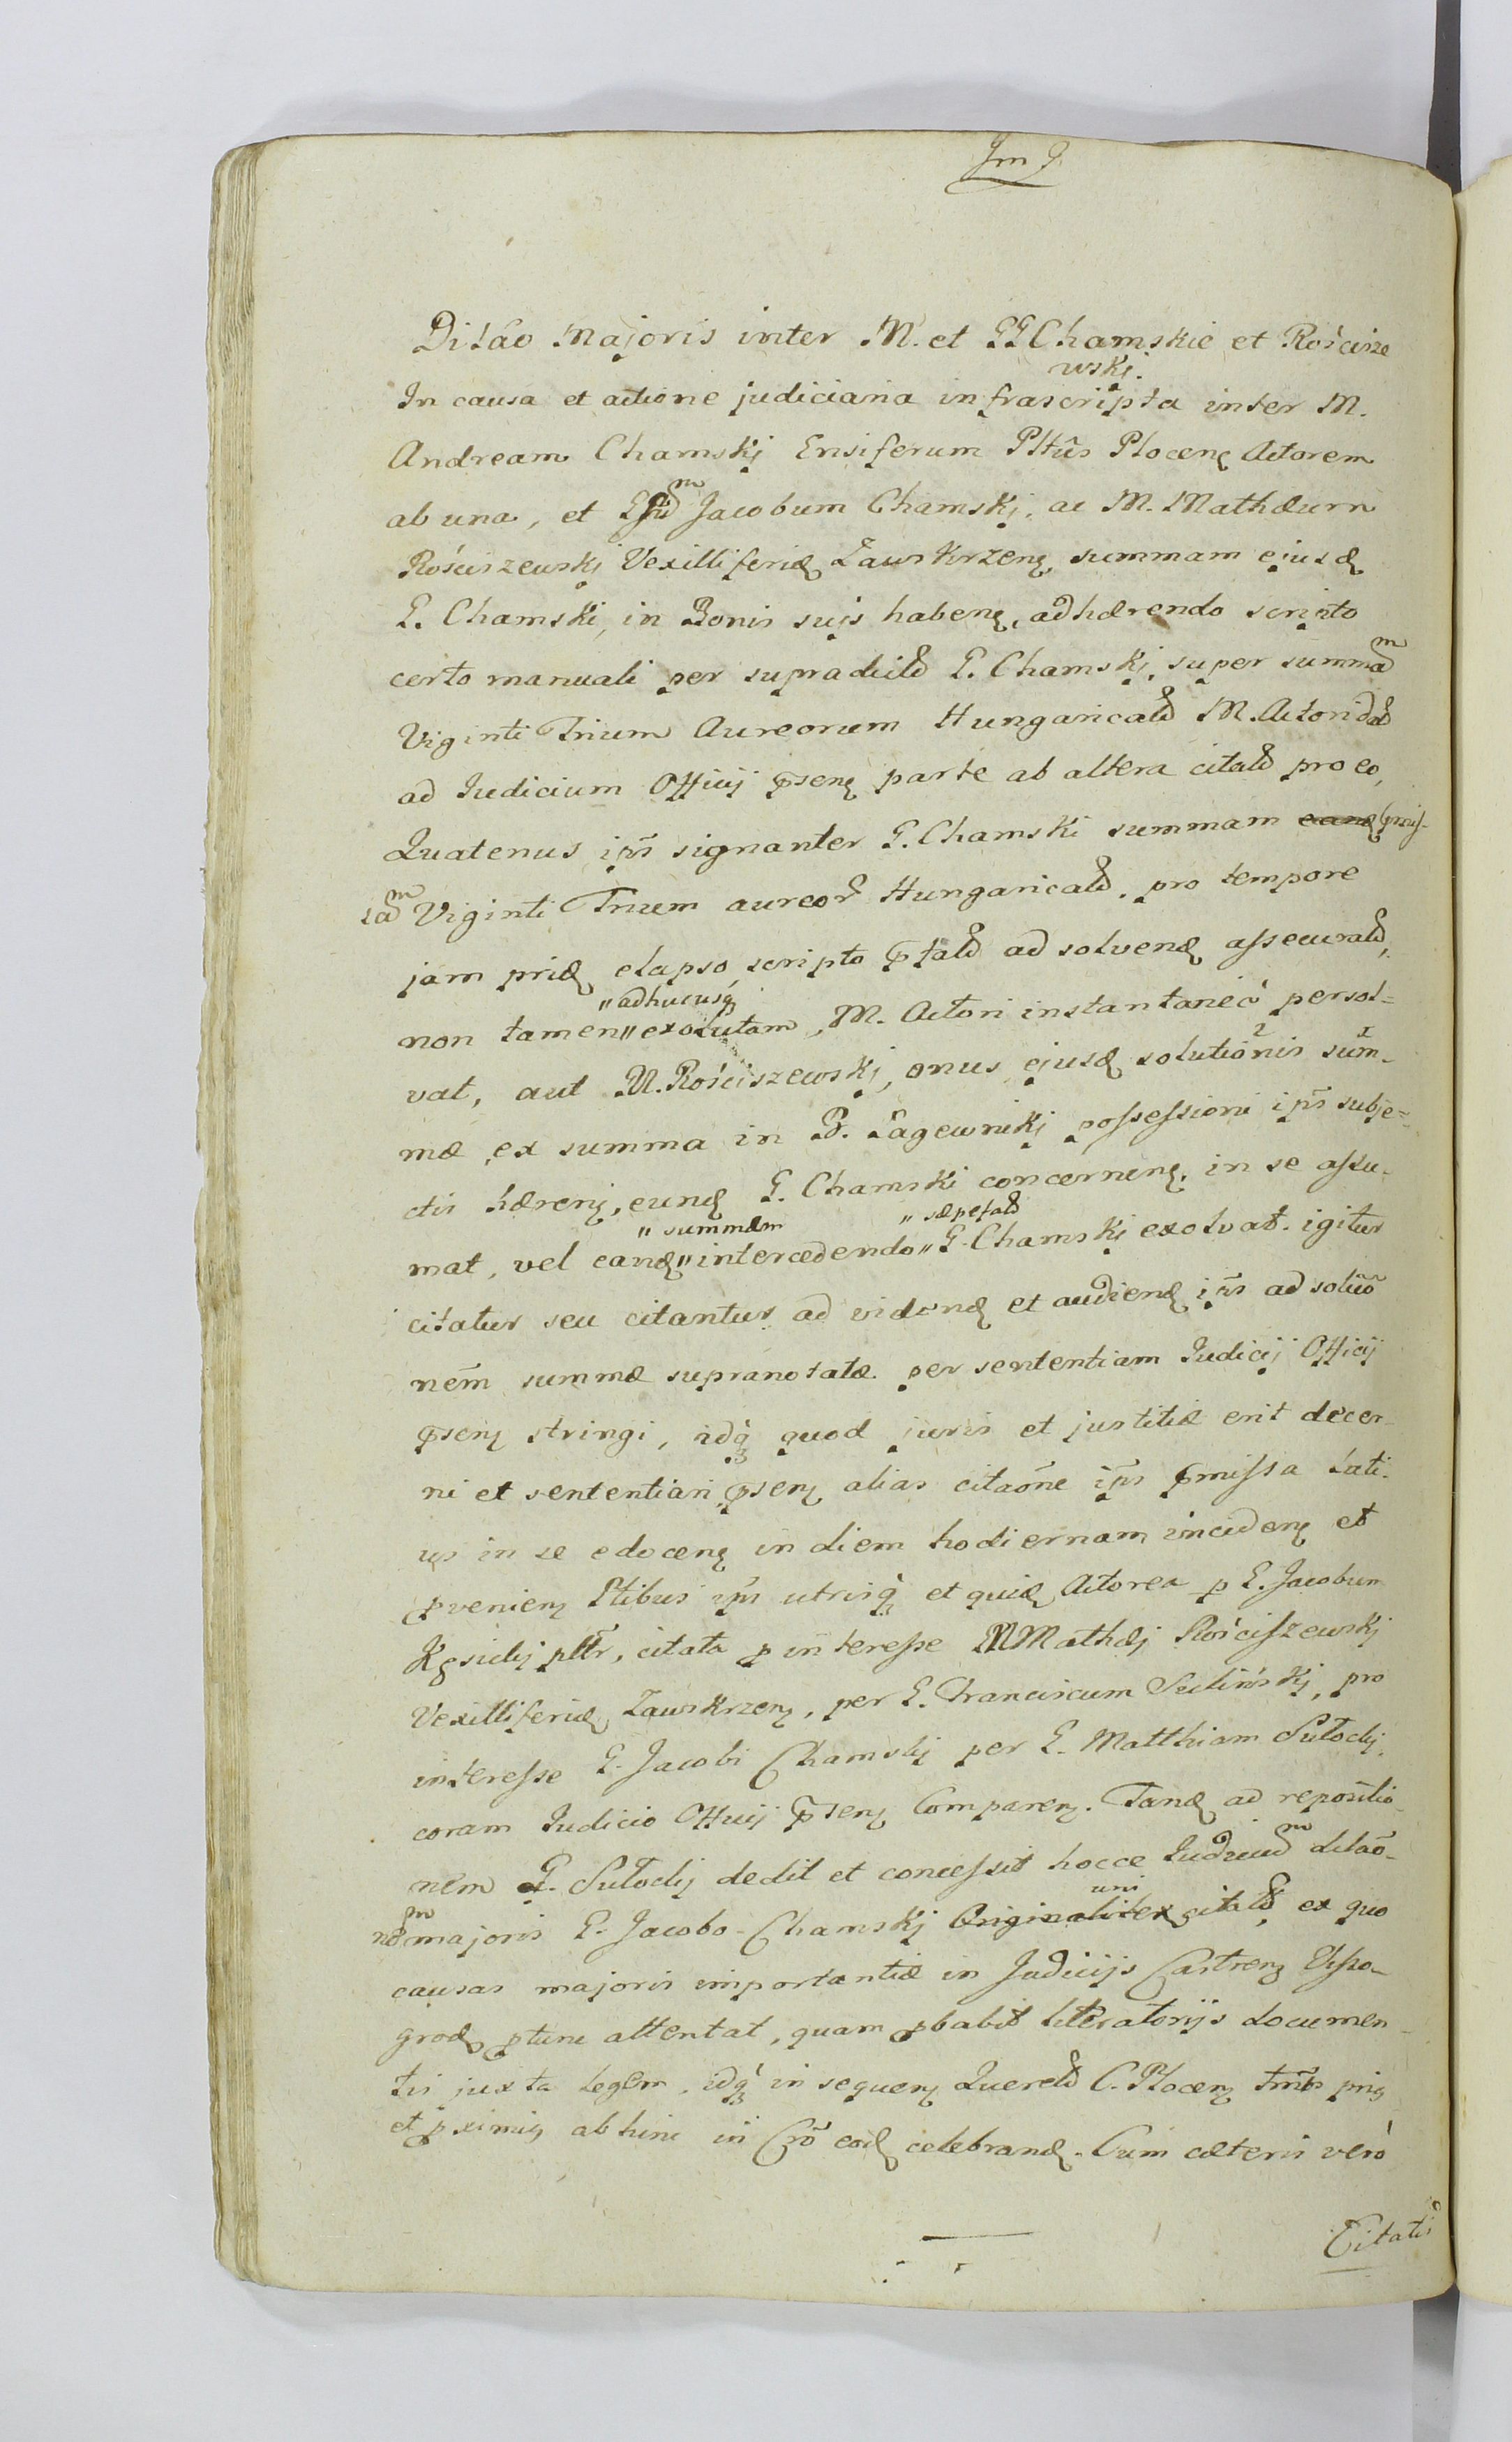 Dilâo Majoris inter M. et GG Chamskie et Rościsze
wskj.
In causa et actione judiciaria infrascripta inter M.
Andream Chamskj Ensiferum Pltûs Plocenę Actorem
ab una, et Jacobum Chamskj, ac M. Mathæum
Rościszewskj Vexilliferidę Zawskrzenę summam ejusdę
G. Chamski, in Bonis suis habenę, adhærendo scripto
certo manuali per supradictũ G. Chamskj, super summam
Viginti Trium Aureorum Hungaricalũ M. Actori datũ
ad Judicium Officij p̃senę parte ab altera citatũ pro eo,
Quatenus ip̃i signanter G. Chamski summam eandę præci-
tam Viginti Trium aureor Hungaricalũ, pro tempore
jam pridę elapso, scripto p̃tatũ ad solvendę assecuratũ,
non tamen " adhucusq̨ " exolutam, M. Actori instantaneè persol=
vat, aut M. Rościszewskj, onus ejusdę solutionis sum̃-
mæ ex summa in B. Łagewnikj possessioni ip̃i subje=
ctis hærenę, eundę G. Chamski concernenę, in se assu-
mat, vel eandę " summam " intercedendo " sæpefatũ " G. Chamskj exolvat. igitur
citatur seu citantur ad videndę et audiendę ip̃s ad solutio
nem̃ summæ supranotatæ per sententiam Judicij Officij
p̃senę stringi, idq̨ quod juris et justitiæ erit decer-
ni et sententiari p̃senę alias citaõne ip̃is p̃missa lati-
us in se edocenę in diem hodiernam incidenę et
p̃venienę Ptibus ip̃is utrisq̨ et quidę Actorea p G. Jacobum
pltr, citata p interesse M Mathæj Rościszewskj
Vexilliferidę Zawskrzenę, per G. Franciscum Sulińskj, pro
interesse G. Jacobi Chamskj per G. Matthiam Sułockj,
coram Judicio Officij p̃senę Comparenę. Tandę ad repositio-
nem G. Sułockj dedit et concessit hocce Judicium dilaõ-
nem majoris G. Jacobo Chamskj Originaliter uni citatũ, ex quo
causas majoris importantiæ in Judicijs Castrenę Visso-
grodę ptunc attentat, quam p̃babit literatorijs documen-
tis juxta legem, idq̨ in sequenę Querelũ C. Plocenę tm̃is priś
et p̃ximię ab hinc in Crõ eodę celebrandę. Cum cæteris verò
Citatis